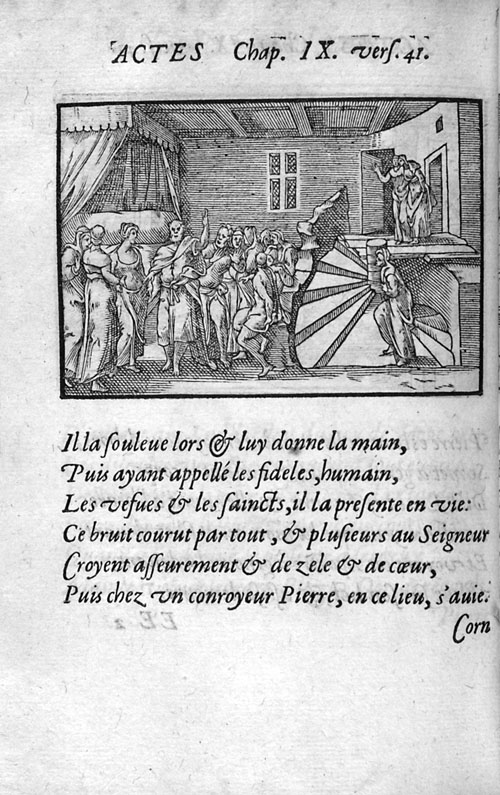 ACTES Chap. IX. verſ. 41.
Il la ſouleue lors & luy donne la main,
Puis ayant appellé les fideles, humain,
Les vefues & les ſaincts, il la preſente en vie:
Ce bruit courut par tout, & pluſieurs au Seigneur
Croyent aſſeurement & de zele & de cœur,
Puis chez vn conroyeur Pierre, en ce lieu, s'auie.
Corn